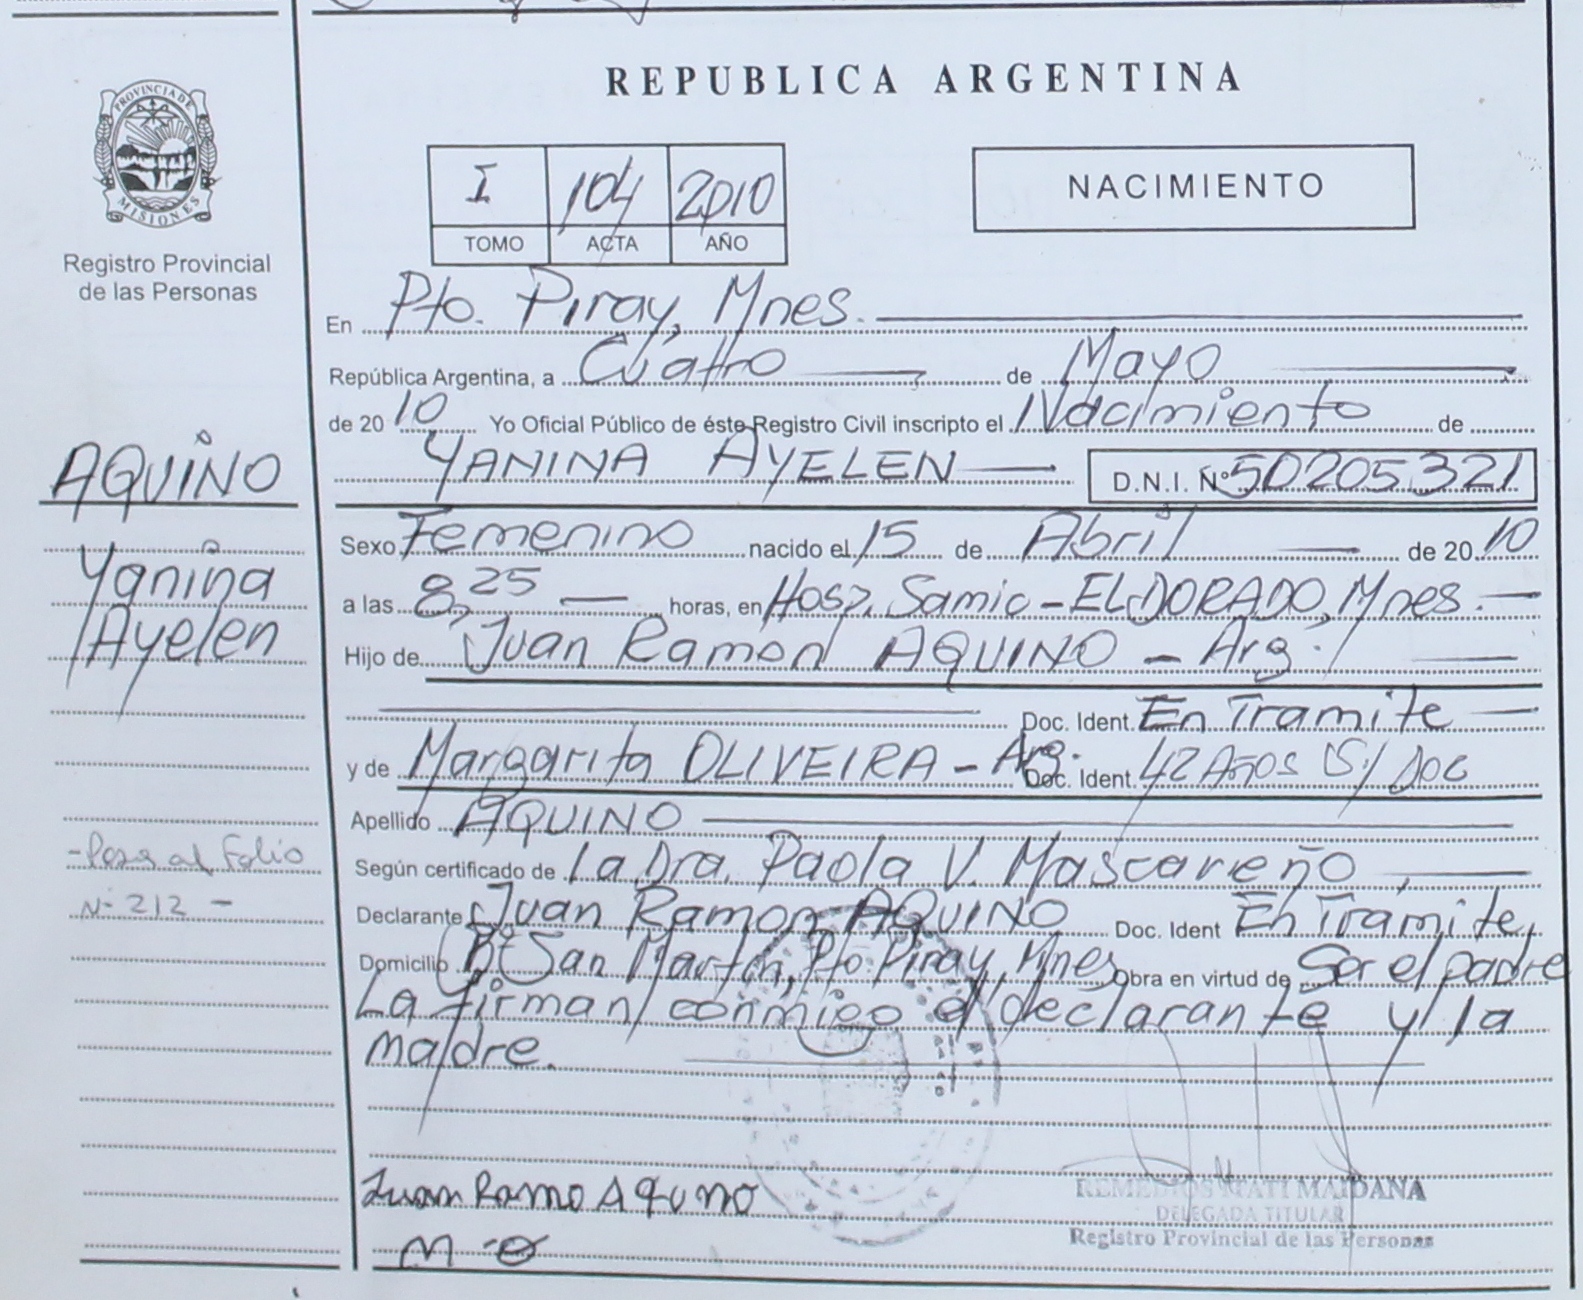 REPUBLICA ARGENTINA
PROVINCIA DE MISIONES
Registro Provincial
de las Personas
I 104 2010
TOMO ACTA AÑO
NACIMIENTO
En Pto. Piray, Mnes.
República Argentina, a Cuatro de Mayo
de 2010 Yo Oficial Público de éste Registro Civil inscripto el Nacimiento de
YANINA AYELEN D.N.I. Nº 50205321
AQUINO
Yanina
Ayelen
Sexo Femenino nacido el 15 de Abril de 2010
a las 8,25 horas, en Hosp. Samic - ELDORADO, Mnes.
Hijo de Juan Ramon AQUINO - Arg.
Doc. Ident. En Tramite
y de Margarita OLIVEIRA - Arg. Doc. Ident. 42 Años S/ Doc
Apellido AQUINO
Según certificado de La Dra. Paola V. Mascareño,
- Pasa al Folio
Nº 212 -
Declarante Juan Ramon AQUINO Doc. Ident En Tramite,
Domicilio Bº San Martin, Pto. Piray, Mnes Obra en virtud de Ser el padre
La firman conmigo el declarante y la
madre.
Juan Ramo Aquno
M O
REMEDIOS ITATI MAIDANA
DELEGADA TITULAR
Registro Provincial de las Personas